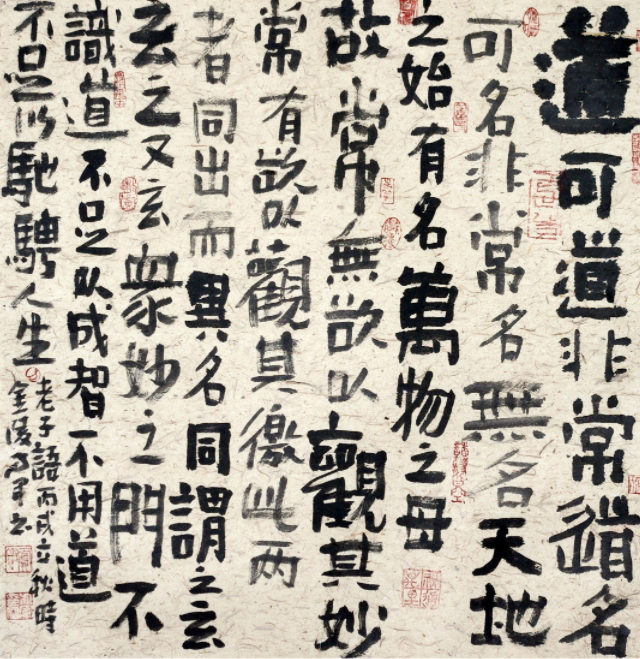 道可道非常道名
可名非常名無名天地
之始有名萬物之母
故常無欲以觀其妙
常有欲以觀其徼此两
者同出而異名同謂之玄
玄之又玄衆妙之門不
識道不足以成智不用道
不足以馳騁人生
老子語丙戌立秋時
金陵